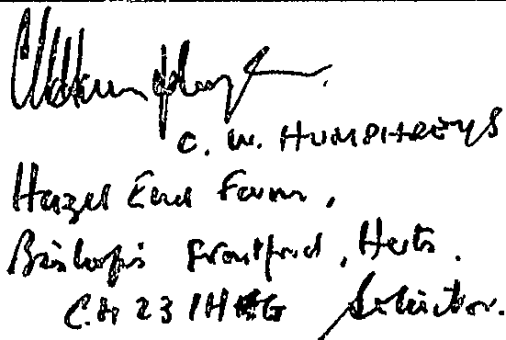 C. W. HUMPHREYS
Hazel End Farm,
Bishop's Stortford, Herts.
CM 23 1HG Solicitor.